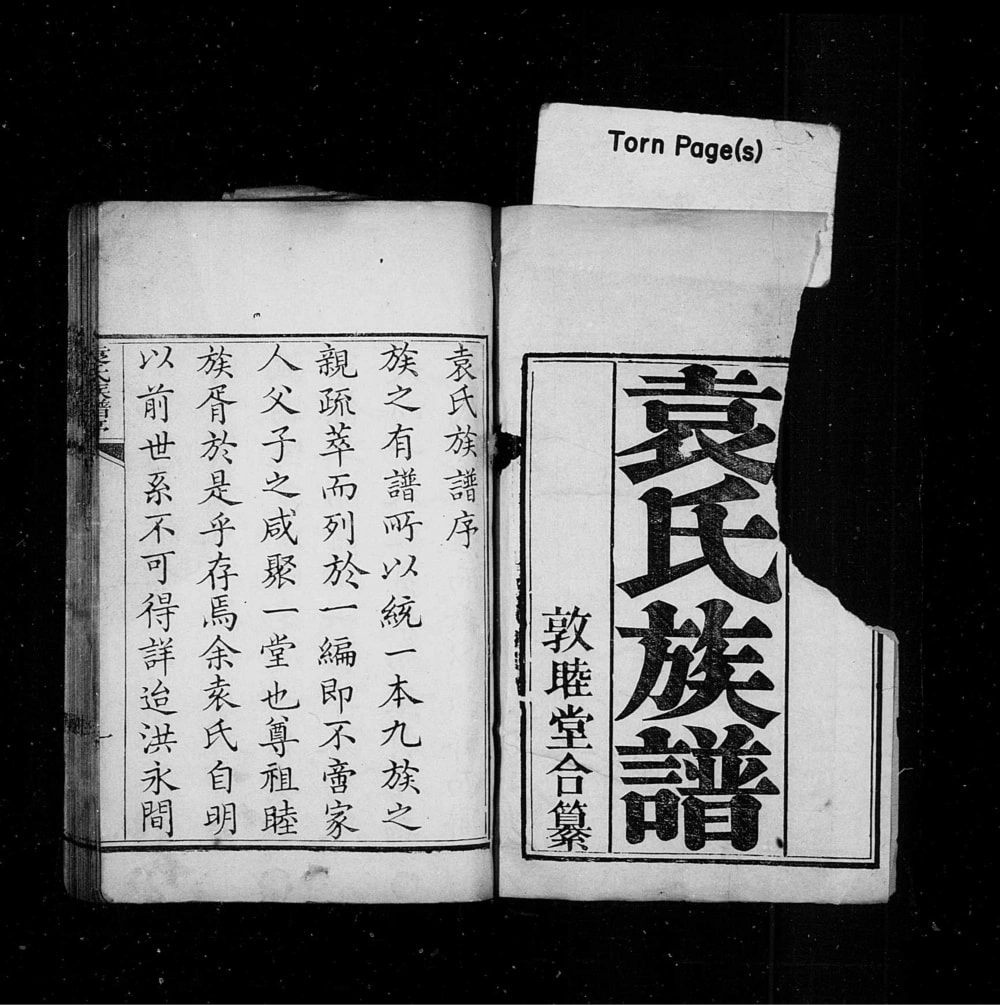 Torn Page(s)
袁氏族譜
敦睦堂合纂
袁氏族譜序
族之有譜所以統一本九族之
親疏萃而列於一編即不啻家
人父子之咸聚一堂也尊祖睦
族胥於是乎存焉余袁氏自明
以前世系不可得詳迨洪永間
袁氏族譜序
一